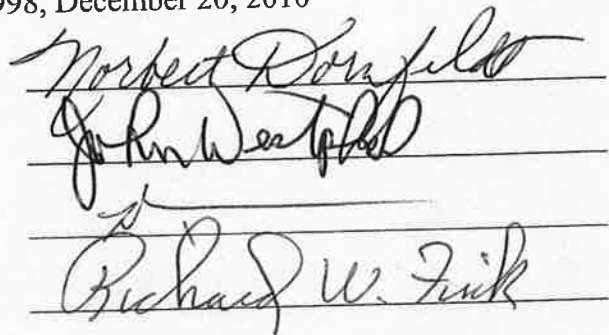 998, December 20, 2010
Norbert Dornfeld
John Westphal
Richard W. Fink